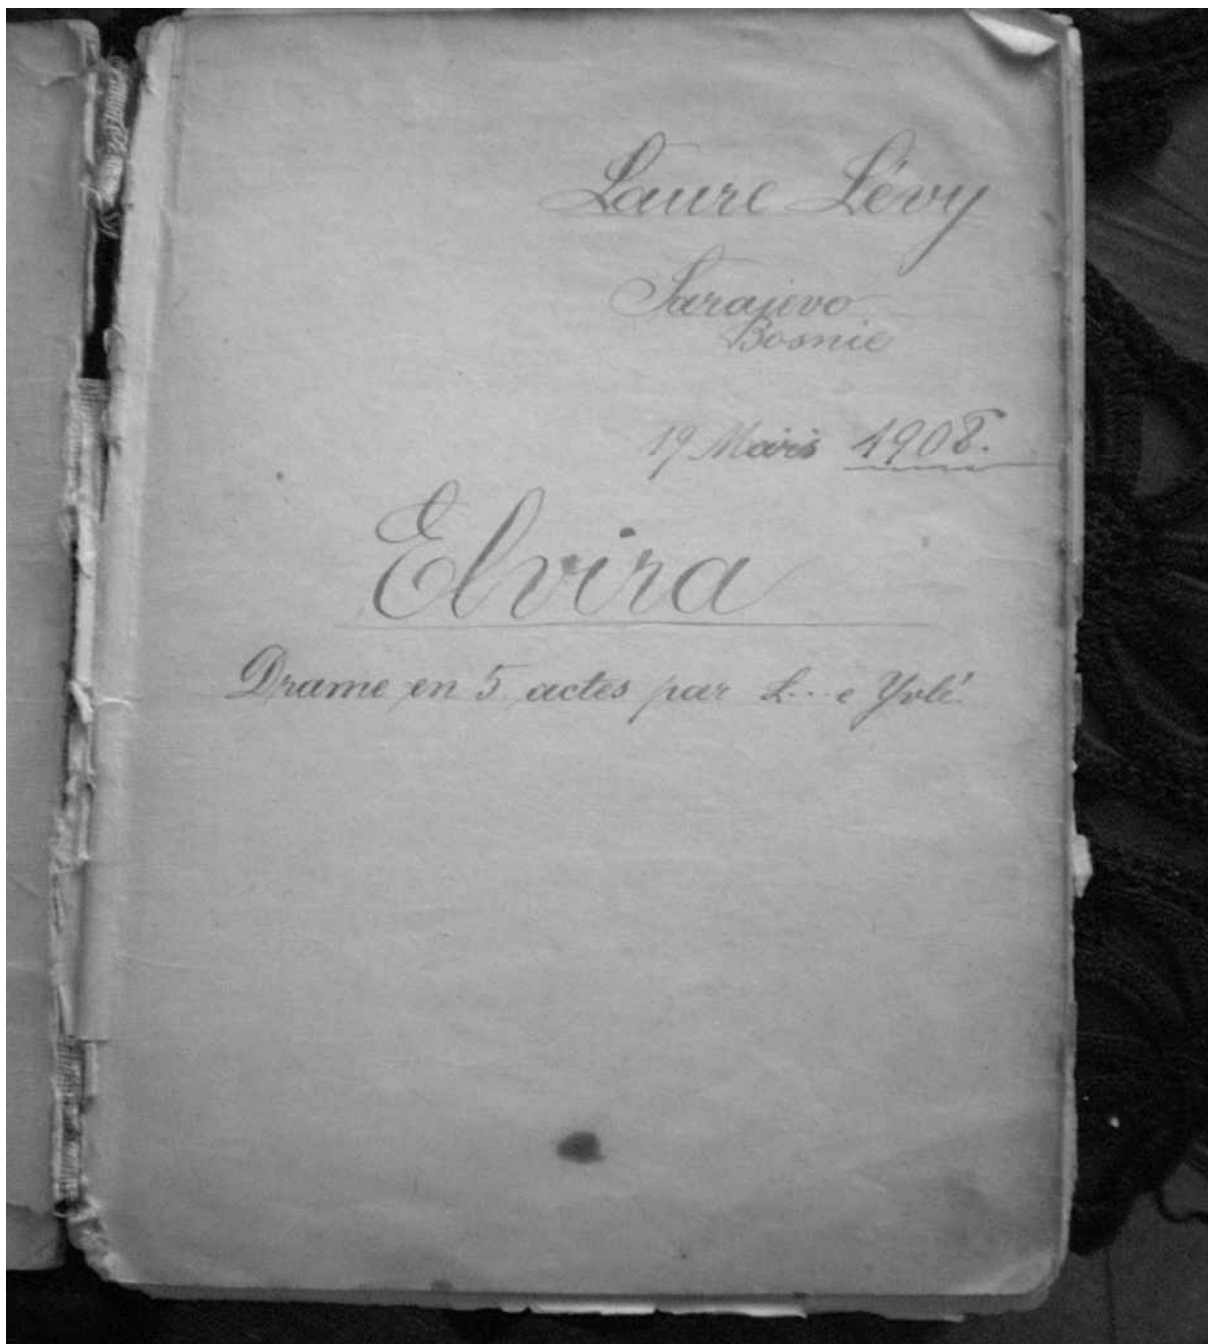 Laure Lévy
Sarajevo
Bosnie
19 Mars 1908.
Elvira
Drame en 5 actes par L... e Yvél.